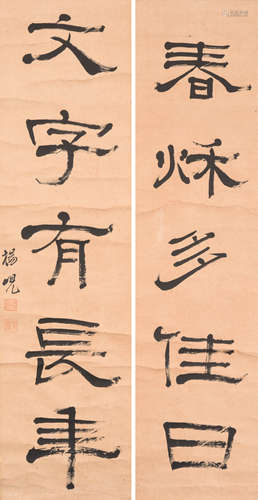 春秌多佳日
文字有長年
楊峴